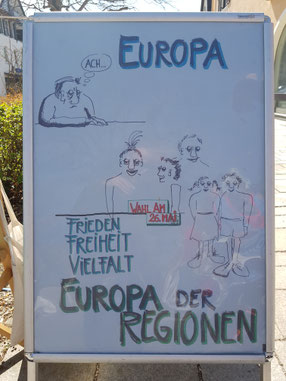 EUROPA
ACH...
WAHL AM
26. MAI
FRIEDEN
FREIHEIT
VIELFALT
EUROPA DER
REGIONEN